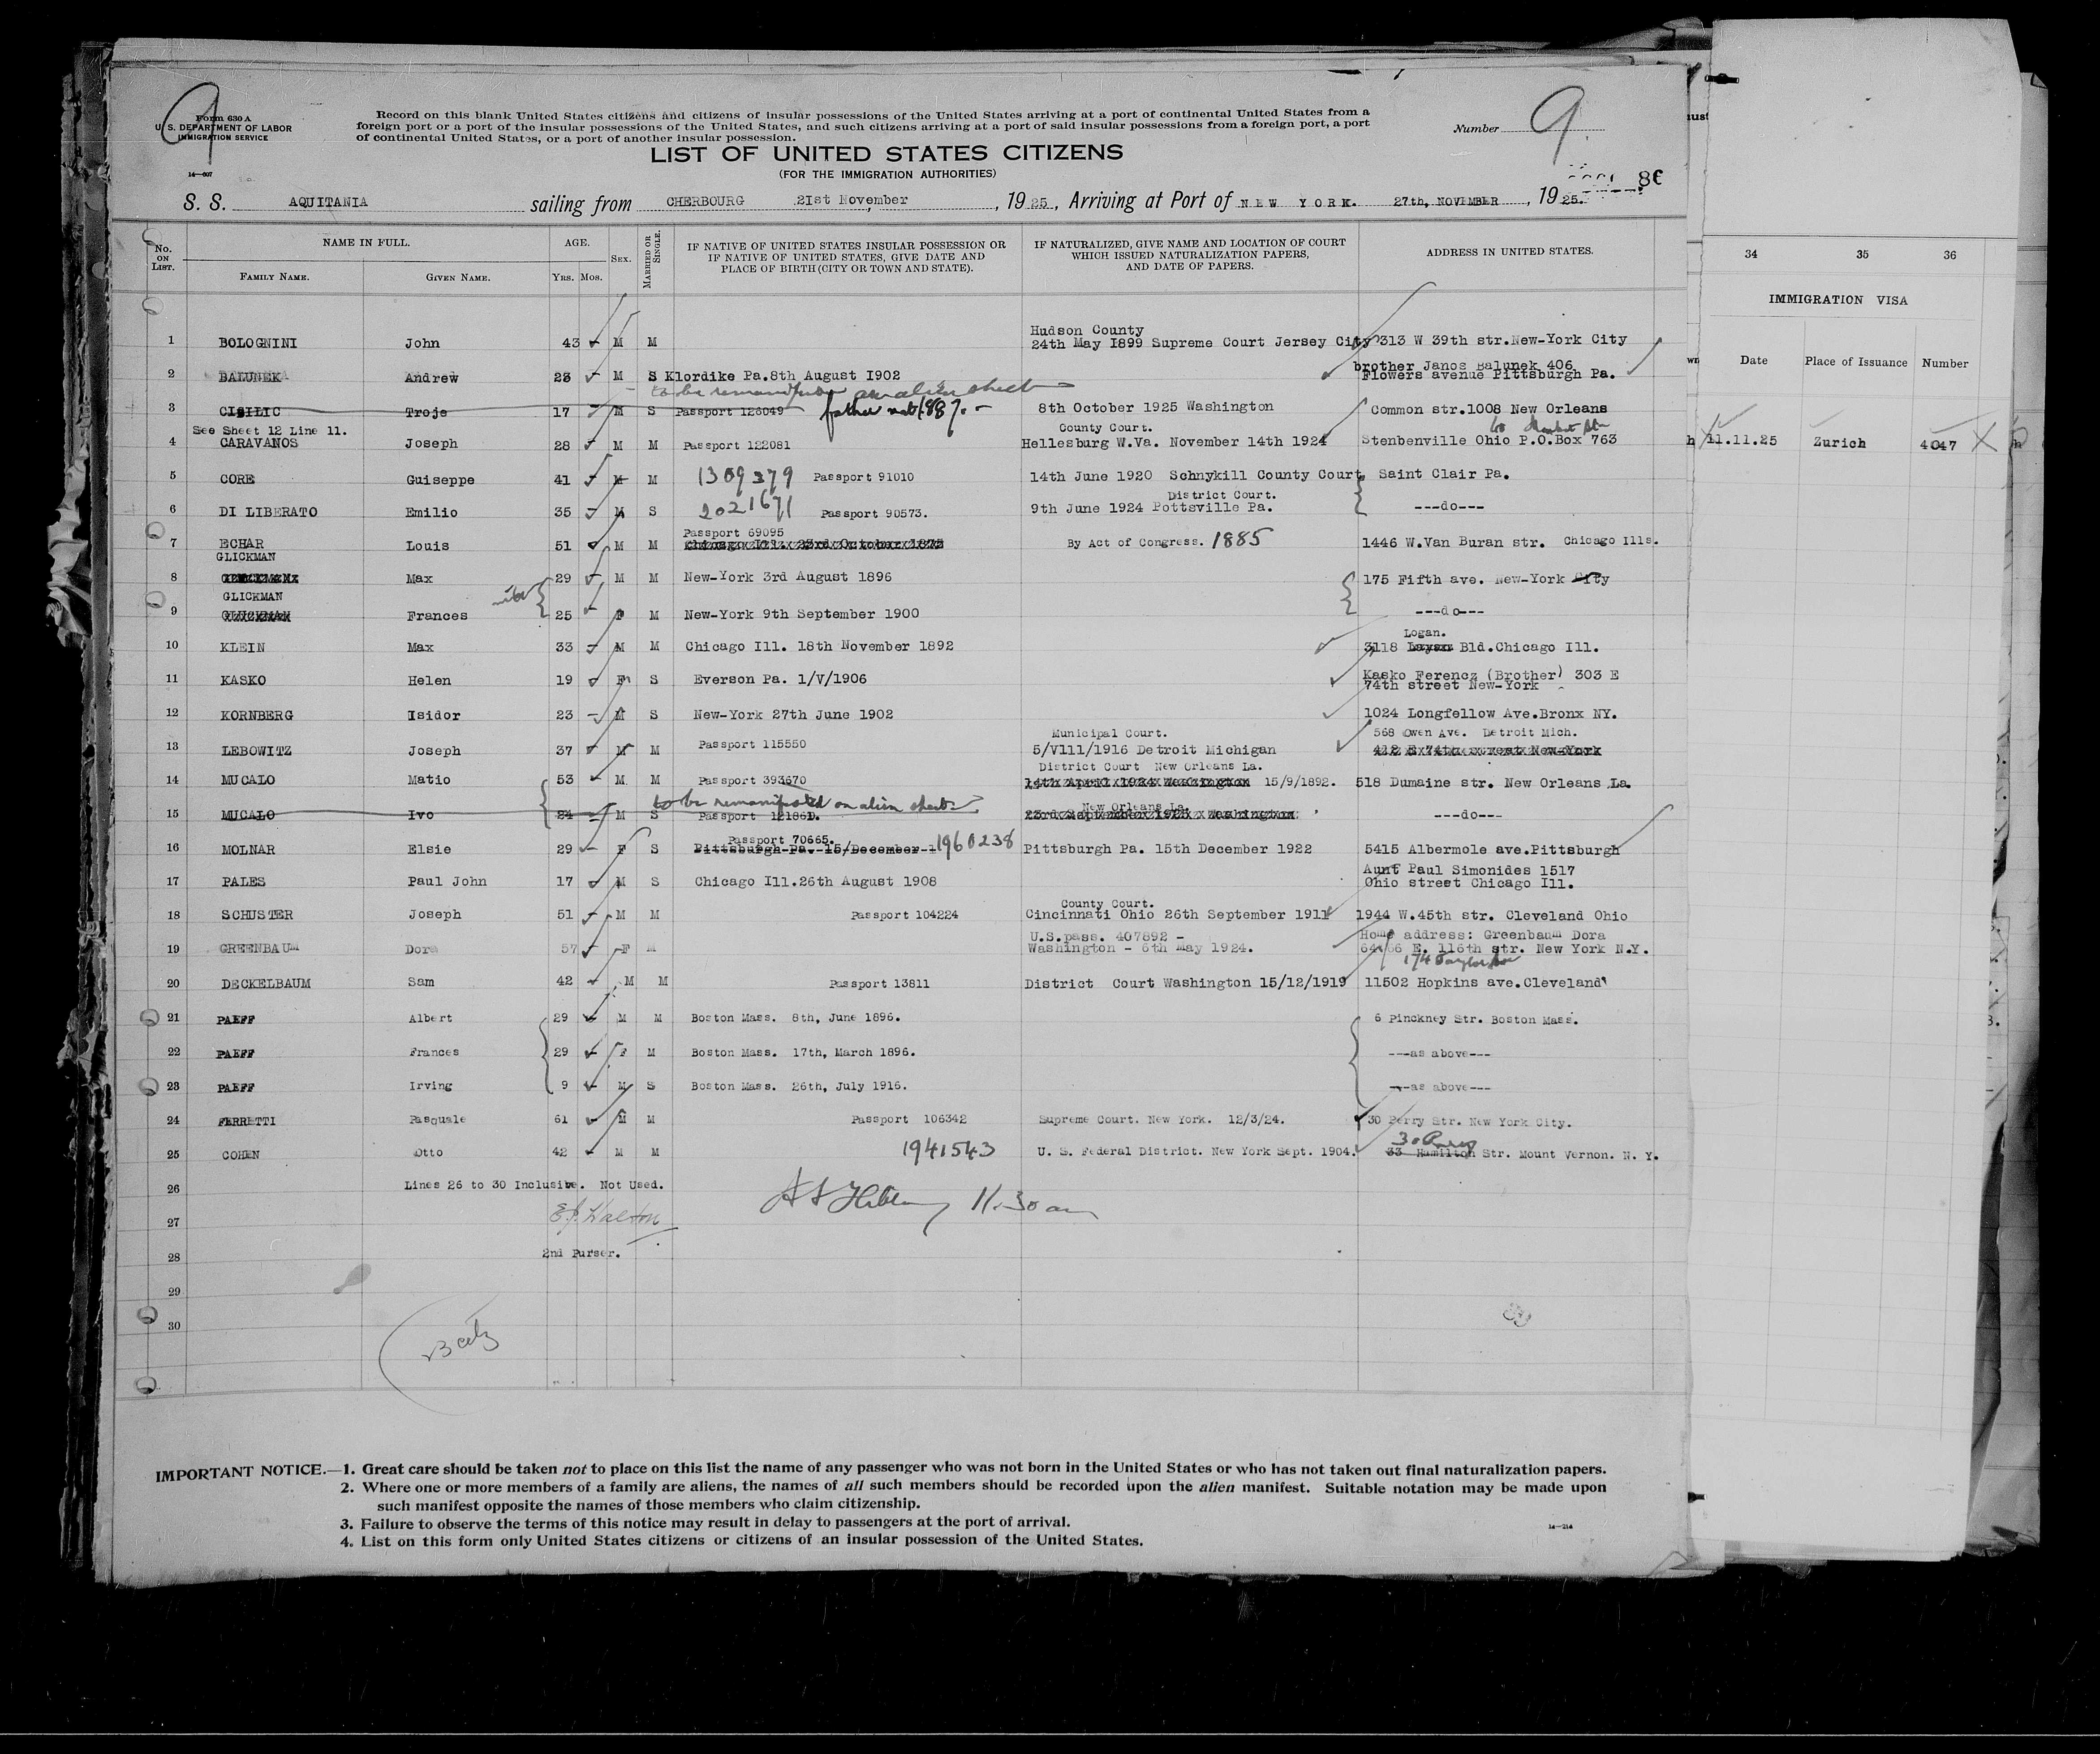 9
Form 630 A
U. S. DEPARTMENT OF LABOR
IMMIGRATION SERVICE
14—607
Record on this blank United States citizens and citizens of insular possessions of the United States arriving at a port of continental United States from a
foreign port or a port of the insular possessions of the United States, and such citizens arriving at a port of said insular possessions from a foreign port, a port
of continental United States, or a port of another insular possession.
Number 9
LIST OF UNITED STATES CITIZENS
(FOR THE IMMIGRATION AUTHORITIES)
S. S. AQUITANIA sailing from CHERBOURG 21st November, 1925, Arriving at Port of NEW YORK. 27th, NOVEMBER, 1925.
No. ON LIST. NAME IN FULL. FAMILY NAME. GIVEN NAME. AGE. YRS. MOS. SEX. MARRIED OR SINGLE. IF NATIVE OF UNITED STATES INSULAR POSSESSION OR IF NATIVE OF UNITED STATES, GIVE DATE AND PLACE OF BIRTH (CITY OR TOWN AND STATE). IF NATURALIZED, GIVE NAME AND LOCATION OF COURT WHICH ISSUED NATURALIZATION PAPERS, AND DATE OF PAPERS. ADDRESS IN UNITED STATES.
Hudson County
1 BOLOGNINI John 43 M M 24th May I899 Supreme Court Jersey City 313 W 39th str.New-York City
brother Janos Balunek 406
2 BALUNEK Andrew 23 M S Klordike Pa.8th August I902 Flowers avenue Pittsburgh Pa.
to be remanifested on alien sheet
3 CISILIC Troje 17 M S Passport 126049 father nat. 1887. 8th October 1925 Washington Common str.1008 New Orleans
See Sheet 12 Line 11. County Court.
4 CARAVANOS Joseph 28 M M Passport 122081 Hellesburg W.Va. November 14th 1924 Stenbenville Ohio P.O.Box 763
5 CORE Guiseppe 41 M M 1309379 Passport 91010 14th June 1920 Schnykill County Court, Saint Clair Pa.
District Court.
6 DI LIBERATO Emilio 35 M S 2021671 Passport 90573. 9th June 1924 Pottsville Pa. ---do---
Passport 69095
7 ECHAR Louis 51 M M Chicago Ill. 23rd October 1875 By Act of Congress. 1885 1446 W.Van Buran str. Chicago Ills.
GLICKMAN
8 Max 29 M M New-York 3rd August 1896 175 Fifth ave. New-York City
GLICKMAN
9 GLUCKMAN Frances wife 25 F M New-York 9th September 1900 ---do---
Logan.
10 KLEIN Max 33 M M Chicago Ill. 18th November 1892 3118 Bld.Chicago Ill.
11 KASKO Helen 19 F S Everson Pa. 1/V/1906 Kasko Ferencz (Brother) 303 E
74th street New-York
12 KORNBERG Isidor 23 M S New-York 27th June 1902 1024 Longfellow Ave.Bronx NY.
Municipal Court. 568 Owen Ave. Detroit Mich.
13 LEBOWITZ Joseph 37 M M Passport 115550 5/V111/1916 Detroit Michigan 412 E 74th street New-York
District Court New Orleans La.
14 MUCALO Matio 53 M M Passport 393670 14th April 1924 Washington 15/9/1892. 518 Dumaine str. New Orleans La.
to be remanifested on alien sheets New Orleans La.
15 MUCALO Ivo 24 M S Passport 12186D. 23rd September 1925 Washington ---do---
Passport 70665.
16 MOLNAR Elsie 29 F S Pittsburgh Pa. 15/December 1 1960238 Pittsburgh Pa. 15th December 1922 5415 Albermole ave.Pittsburgh
Aunt Paul Simonides 1517
17 PALES Paul John 17 M S Chicago Ill.26th August 1908 Ohio street Chicago Ill.
County Court.
18 SCHUSTER Joseph 51 M M Passport 104224 Cincinnati Ohio 26th September 1911 1944 W.45th str. Cleveland Ohio
U.S.pass. 407892 - Home address: Greenbaum Dora
19 GREENBAUM Dora 57 F M Washington - 6th May 1924. 64/66 E. 116th str. New York N.Y.
174 Taylor Ave
20 DECKELBAUM Sam 42 M M Passport 13811 District Court Washington 15/12/1919 11502 Hopkins ave.Cleveland
21 PAEFF Albert 29 M M Boston Mass. 8th, June 1896. 6 Pinckney Str. Boston Mass.
22 PAEFF Frances 29 F M Boston Mass. 17th, March 1896. ---as above---
23 PAEFF Irving 9 M S Boston Mass. 26th, July 1916. ---as above---
24 FERRETTI Pasquale 61 M M Passport 106342 Supreme Court. New York. 12/3/24. 30 Perry Str. New York City.
30 Perry
25 COHEN Otto 42 M M 1941543 U. S. Federal District. New York Sept. 1904. 33 Hamilton Str. Mount Vernon. N. Y.
26 Lines 26 to 30 Inclusive. Not Used.
27 E.J. Walton 11.30 am
28 2nd Purser.
29
30
IMPORTANT NOTICE.—1. Great care should be taken not to place on this list the name of any passenger who was not born in the United States or who has not taken out final naturalization papers.
2. Where one or more members of a family are aliens, the names of all such members should be recorded upon the alien manifest. Suitable notation may be made upon
such manifest opposite the names of those members who claim citizenship.
3. Failure to observe the terms of this notice may result in delay to passengers at the port of arrival.
4. List on this form only United States citizens or citizens of an insular possession of the United States.
14—214
34 35 36
IMMIGRATION VISA
Date Place of Issuance Number
11.11.25 Zurich 4047